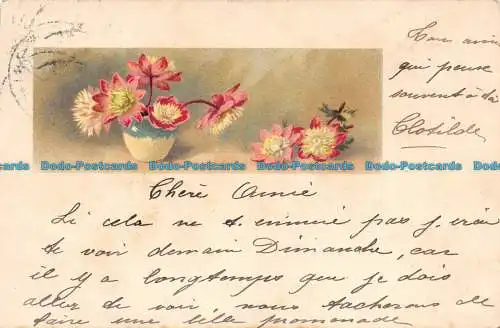 Ton amie
qui pense
souvent à toi
Clotilde
Dodo-Postcards Dodo-Postcards Dodo-Postcards Dodo-Postcards Dodo-Postcards
Chère Amie
Si cela ne t. ennuie pas j. irai
te voir demain Dimanche, car
il y a longtemps que je dois
aller te voir, nous tacherons de
faire une belle promenade